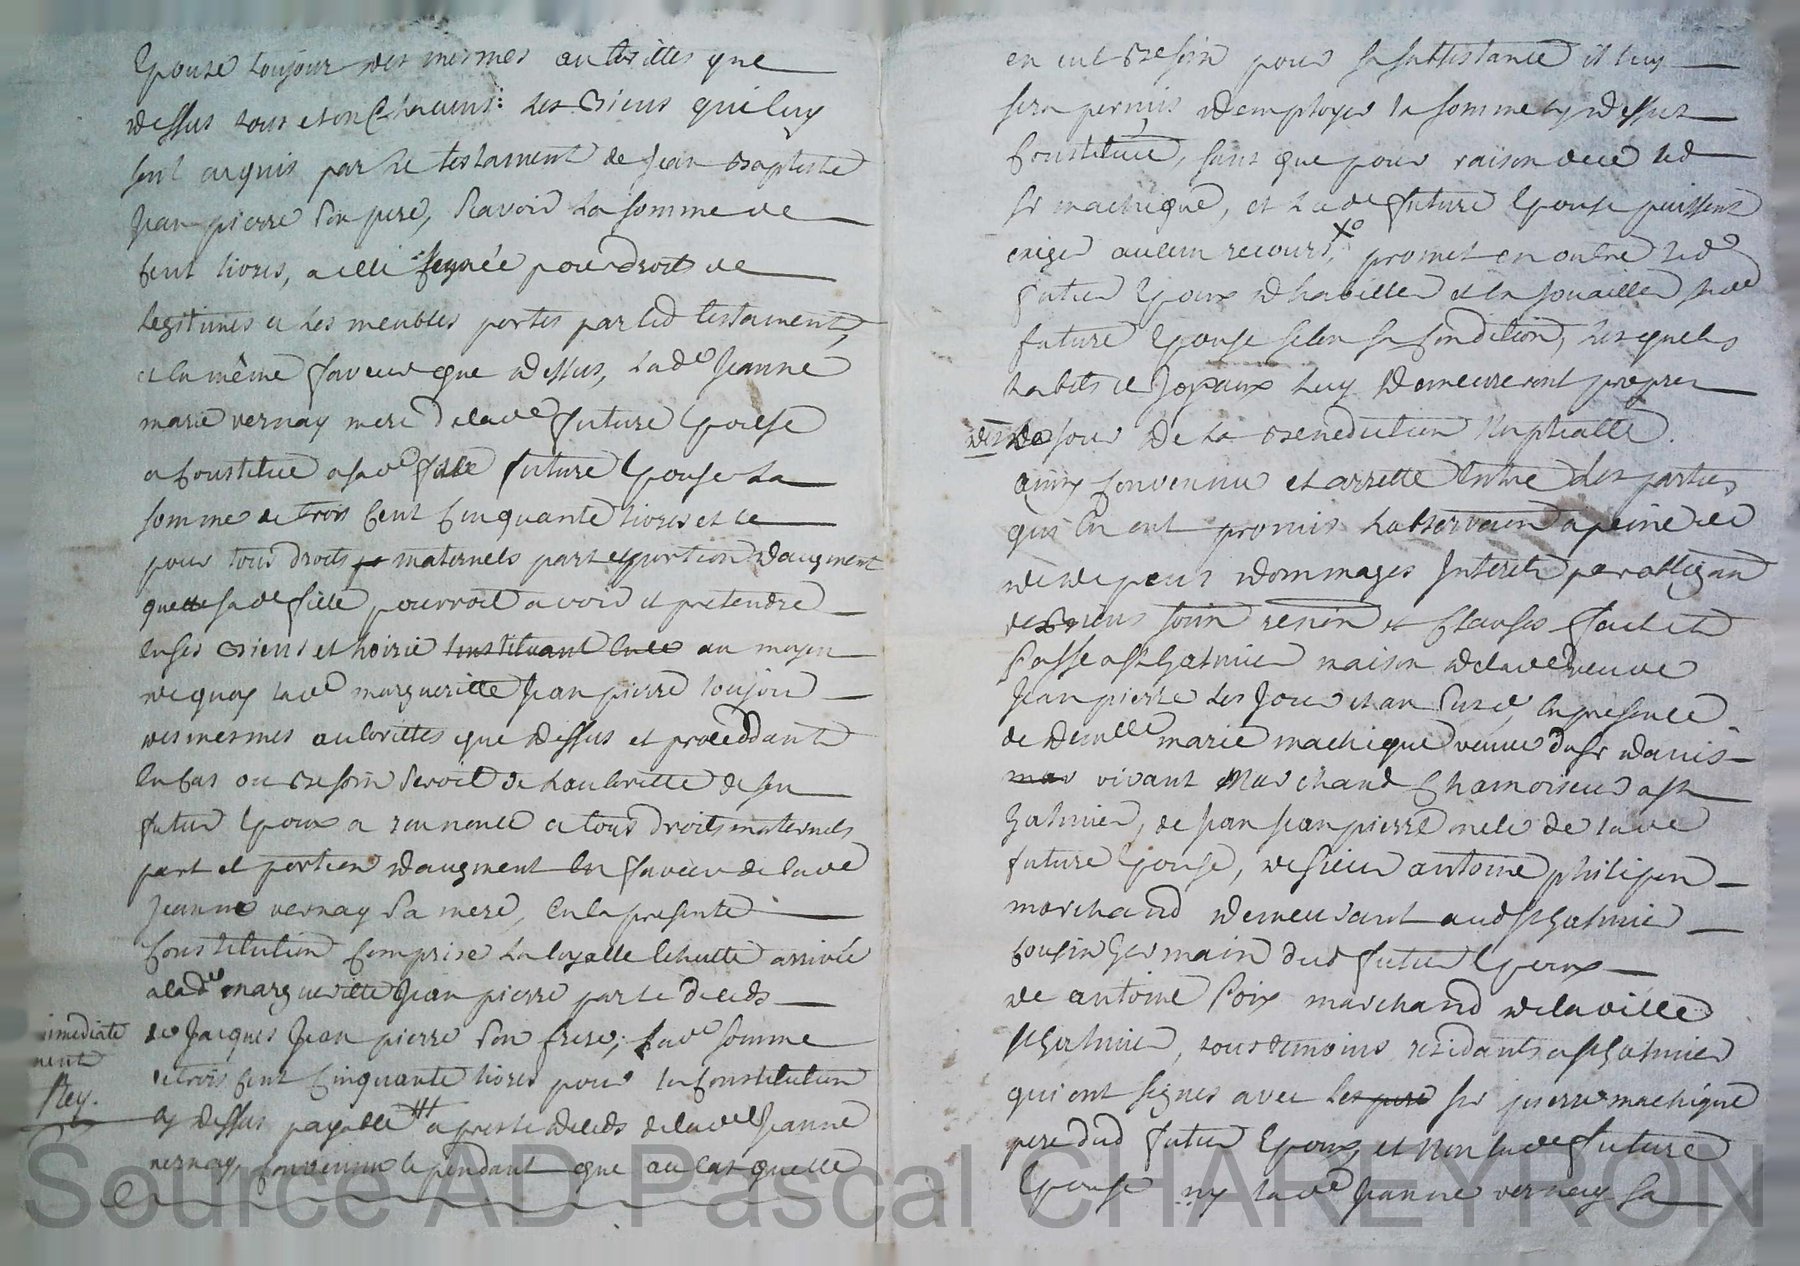 Epouze toujour des mesmes authorittes que
dessus tous et un Chacuns: les Biens qui luy
sont acquis par le testament de Jean Baptiste
Jean pierre son pere, scavoir la somme de
Cent livres, a elle leguée pour droits de
legitimes et les meubles portes par led testament,
et la même faveur que dessus, lade Jeanne
marie vernay mere delade future Epouse
a Constitue a sade fille future Epouse la
somme de trois Cent Cinquante livres et ce
pour tous droits maternels part et portion daugment
que sade fille pourroit avoir et pretendre
en ses Biens et hoirie instituant au moyen
de quoy lade margueritte Jean pierre toujour
des mesmes authorittes que dessus et proceddante
en Cas ou Besoin seroit de L'authoritte de son
futur Epoux a renoncé a tous droits maternels
part et portion daugment en faveur de lade
Jeanne vernay sa mere, en la presente
Constitution Comprise la loyalle Echutte arrivée
a lade margueritte Jean pierre par le deceds
de Jacques Jean pierre son frere, lade somme
de trois Cent Cinquante livres pour la Constitution
cy dessus payable apres le deceds delade Jeanne
vernay, Convenu Cependant que au Cas quelle
immediate
ment
Rey.
en eut Besoin pour sa subsistance il luy
sera permis demployer la somme cy dessus
Constituée, sans que pour raison de ce led
sr machique, et lade future Epouse puissent
exiger aucun recours, promet en outre led
futur Epoux dhabiller et en jouailler sade
future Epouse selon sa Condition, lesquels
habits et Joyaux luy demeureront propres
des le jour de la Benediction Nuptialle.
ainsy Convenu et arretté Entre les parties
qui En ont promis L'observation a peine de
de depens dommages Interets par obligation
de Biens soum renon et Clauses fait et
Passé a st Galmier maison delade veuve
Jean pierre les Jour et an susd, en presence
de Demlle marie machique veuve du sr danis
vivant Marchand Chamoiseur a st
Galmier, de Jean Jean pierre de lade
future Epouse, de sieur antoine philipon
marchand demeurant aud st Galmier
Cousin Germain dud futur Epoux
de antoine Poix marchand de la ville
st Galmier, tous temoins residants a st Galmier
qui ont signés avec les pere sr pierre machique
pere dud futur Epoux, et Non lade future
Epouse ny lade Jeanne vernay sa
Source AD Pascal CHAREYRON